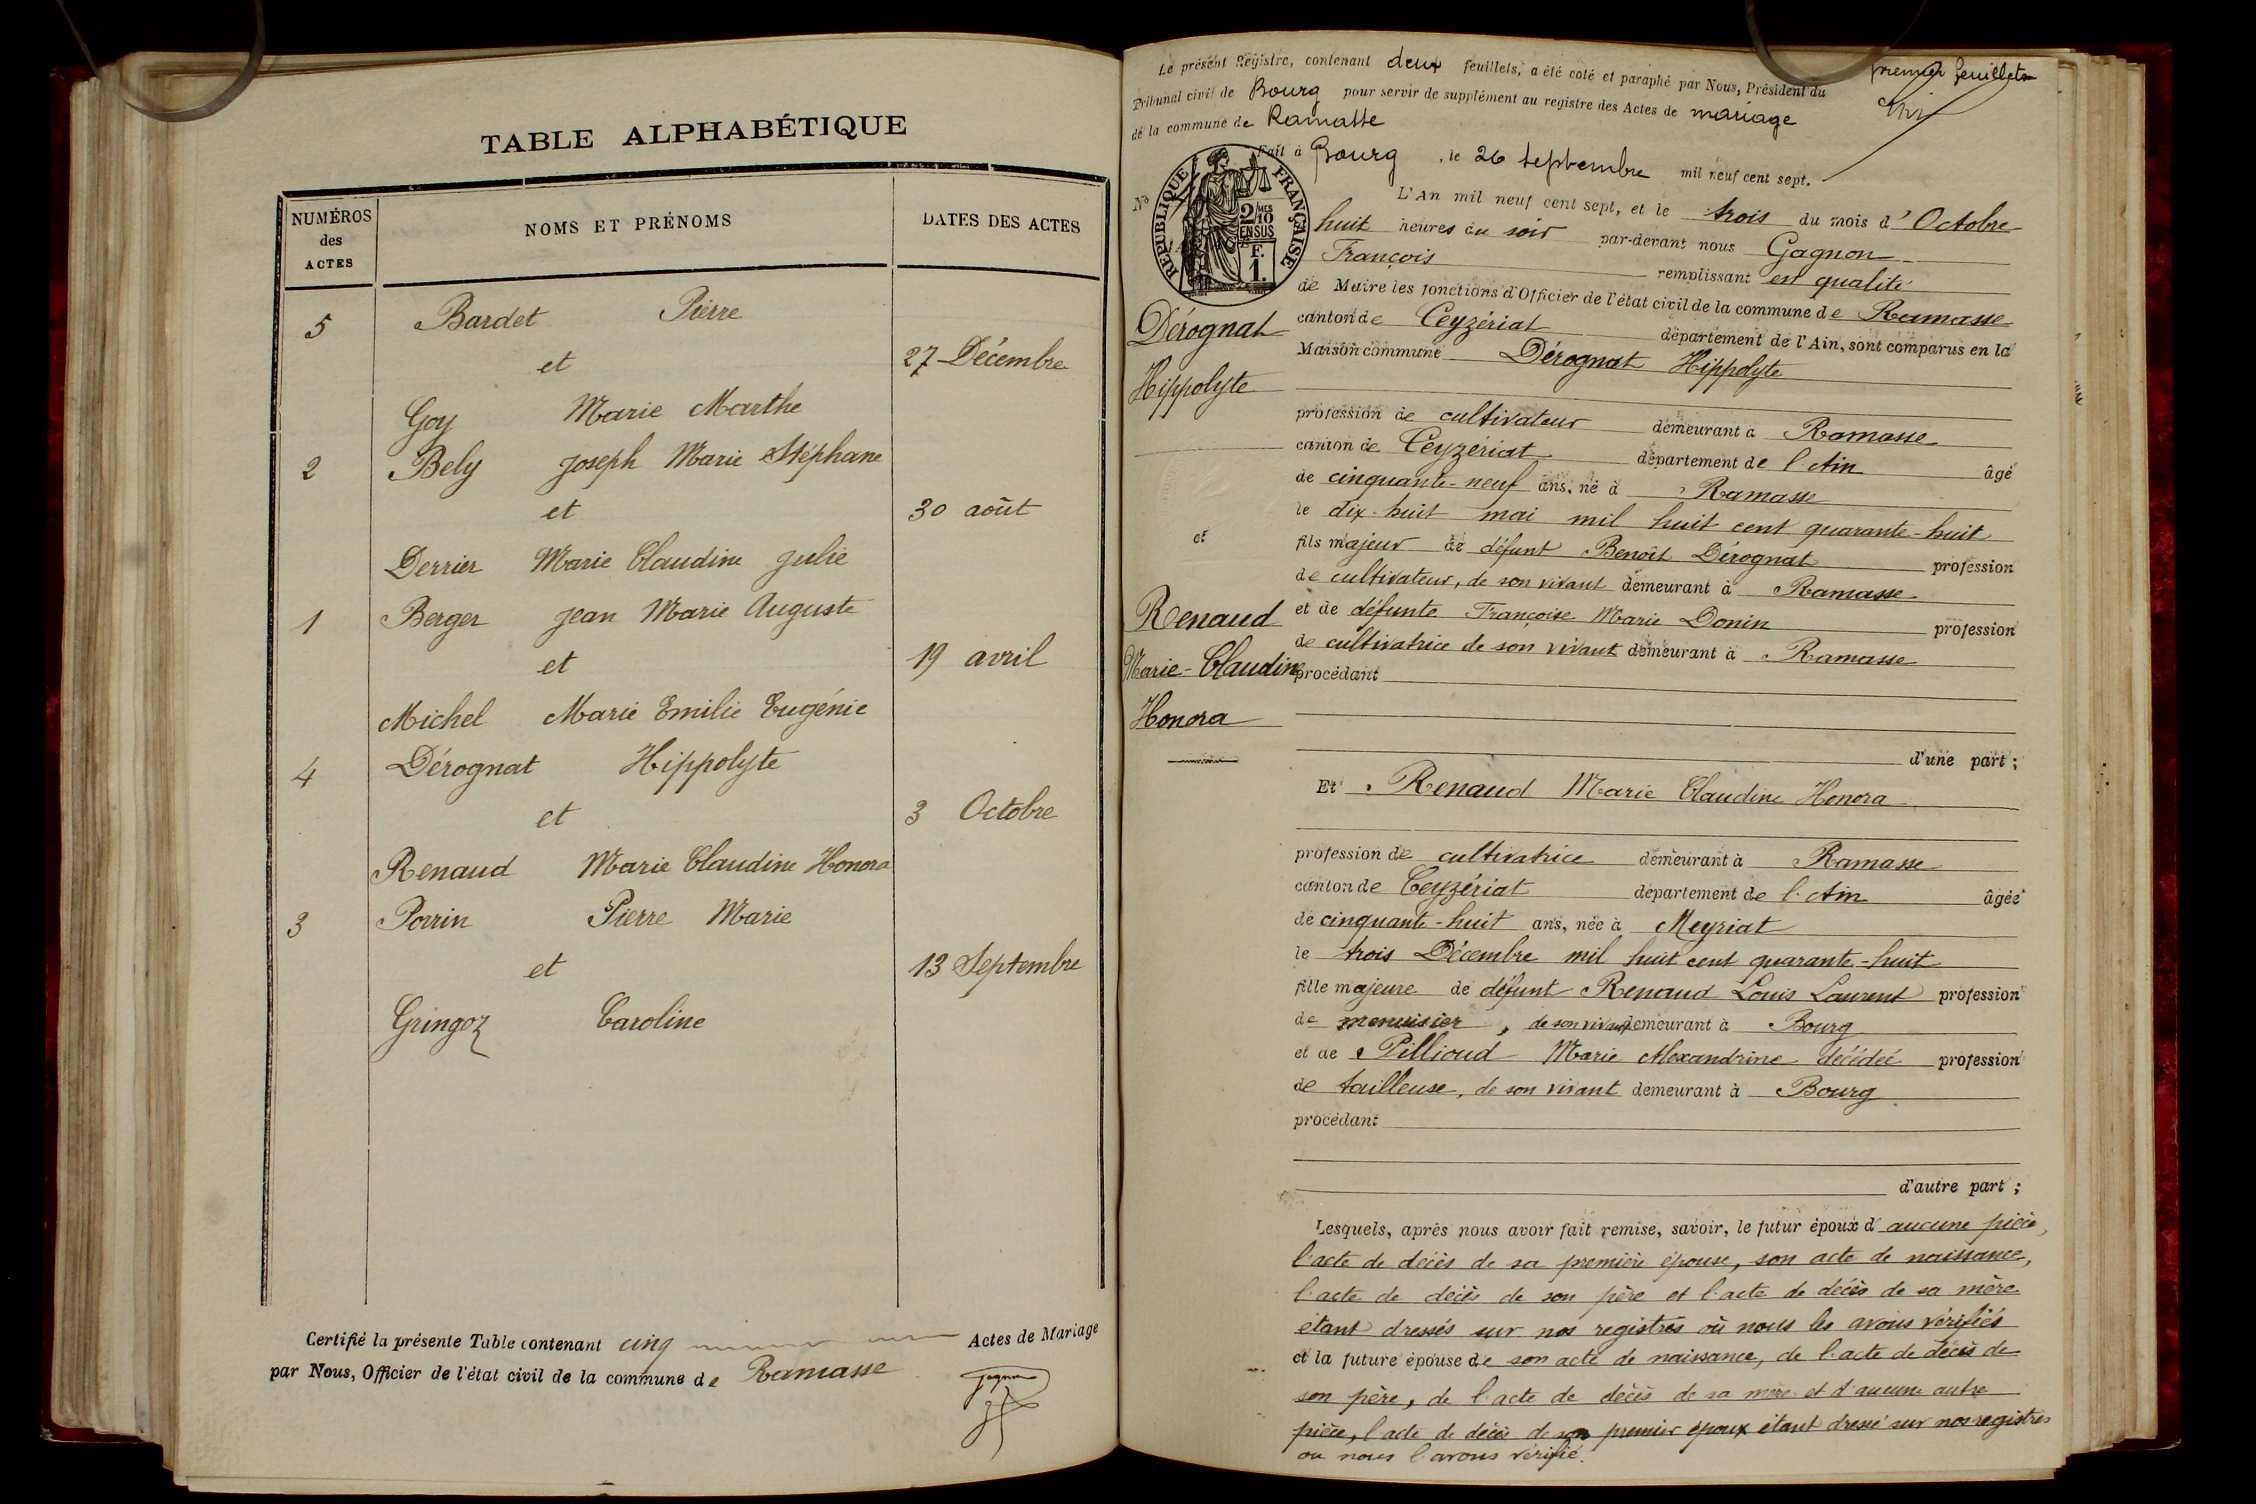 TABLE ALPHABÉTIQUE
NUMÉROS des ACTES
NOMS ET PRÉNOMS
DATES DES ACTES
5 Bardet Pierre
et
27 Décembre
Goy Marie Marthe
2 Bely Joseph Marie Stéphane
et
30 août
Derrier Marie Claudine Julie
1 Berger Jean Marie Auguste
et
19 avril
Michel Marie Emilie Eugénie
4 Dérognat Hippolyte
et
3 Octobre
Renaud Marie Claudine Honora
3 Perrin Pierre Marie
et
13 Septembre
Gringoz Caroline
Certifié la présente Table contenant cinq Actes de Mariage
par Nous, Officier de l'état civil de la commune de Ramasse
Gagnon
premier feuillet
Le présent Registre, contenant deux feuillets, a été coté et paraphé par Nous, Président du
Tribunal civil de Bourg pour servir de supplément au registre des Actes de mariage
de la commune de Ramasse
Fait à Bourg, le 26 septembre mil neuf cent sept.
No
RÉPUBLIQUE FRANÇAISE
2/10 MES EN SUS
F. 1.
L'An mil neuf cent sept, et le trois du mois d'Octobre
huit heures du soir par-devant nous Gagnon
François remplissant en qualité
de Maire les fonctions d'Officier de l'état civil de la commune de Ramasse
canton de Ceyzériat département de l'Ain, sont comparus en la
Maison commune Dérognat Hippolyte
Dérognat
Hippolyte
et
Renaud
Marie-Claudine
Honora
profession de cultivateur demeurant à Ramasse
canton de Ceyzériat département de l'Ain âgé
de cinquante-neuf ans, né à Ramasse
le dix-huit mai mil huit cent quarante-huit
fils majeur de défunt Benoît Dérognat profession
de cultivateur, de son vivant demeurant à Ramasse
et de défunte Françoise Marie Donin profession
de cultivatrice de son vivant demeurant à Ramasse
procédant
d'une part ;
Et Renaud Marie Claudine Honora
profession de cultivatrice demeurant à Ramasse
canton de Ceyzériat département de l'Ain âgée
de cinquante-huit ans, née à Meyriat
le trois Décembre mil huit cent quarante-huit
fille majeure de défunt Renaud Louis Laurent profession
de menuisier, de son vivant demeurant à Bourg
et de Pillioud Marie Alexandrine décédée profession
de tailleuse, de son vivant demeurant à Bourg
procédant
d'autre part ;
Lesquels, après nous avoir fait remise, savoir, le futur époux d'aucune pièce,
l'acte de décès de sa première épouse, son acte de naissance,
l'acte de décès de son père et l'acte de décès de sa mère
étant dressés sur nos registres où nous les avons vérifiés
et la future épouse de son acte de naissance, de l'acte de décès de
son père, de l'acte de décès de sa mère et d'aucune autre
pièce, l'acte de décès de son premier époux étant dressé sur nos registres
ou nous l'avons vérifié.